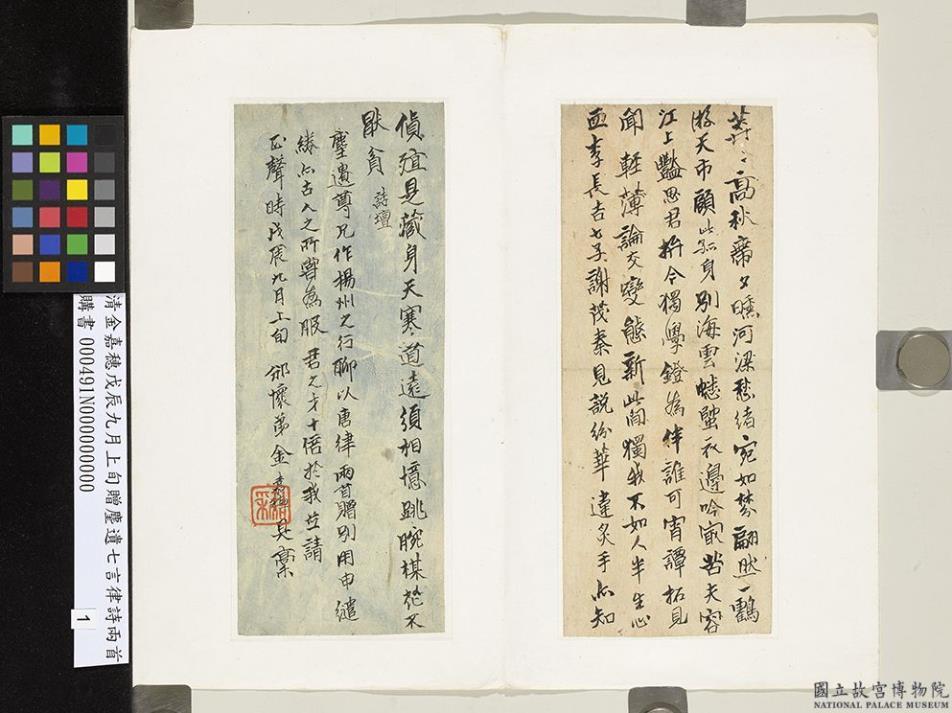 葑葑高秋帶夕曛河梁愁緒宛如棼翩然一鶴
游天市顧此孤身別海雲蟋蟀衣邊吟最苦芙容
江上豔思君於今獨學鐙為伴誰可宵譚拓見
聞 輕薄論交變態新此間獨我不如人半生心
血李長吉七子謝茂秦見說紛華違炙手亦知
偵殖是藏身天寒道遠須相憶跳腕棋
猒貧 詩壇
塵遺尊兄作揚州之行聊以唐律兩首贈別用申繾
綣亦古人之所 為服君之才十倍於我并請
正聲時戊辰九月上旬 懷弟金嘉穗具稾
清金嘉穗戊辰九月上旬贈塵遺七言律詩兩首
購書 000491N000000000
1
國立故宮博物院
NATIONAL PALACE MUSEUM